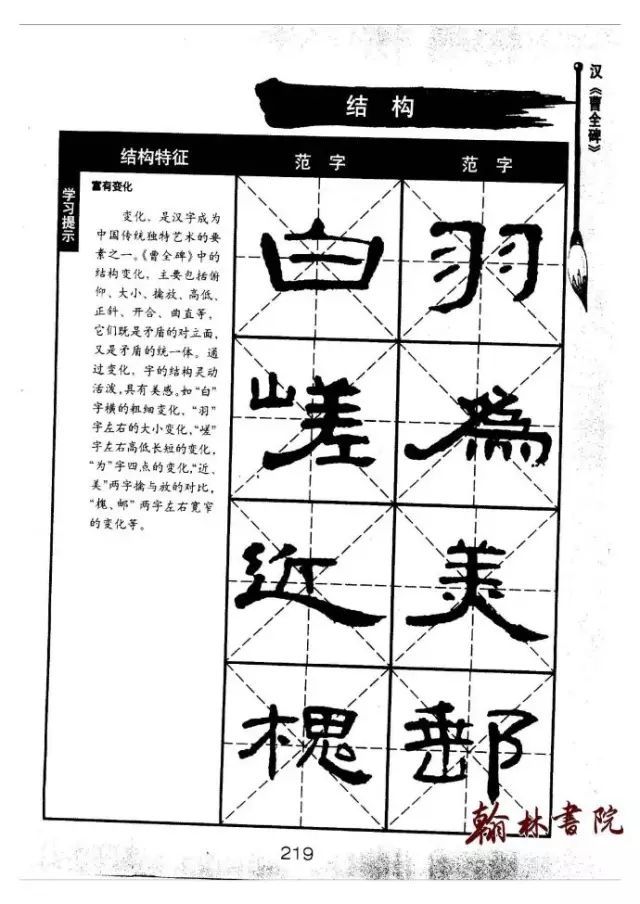 汉《曹全碑》
结构
结构特征
范字
范字
学习提示
富有变化
变化，是汉字成为
中国传统独特艺术的要
素之一。《曹全碑》中的
结构变化，主要包括俯
仰、大小、擒放、高低、
正斜、开合、曲直等，
它们既是矛盾的对立面，
又是矛盾的统一体。通
过变化，字的结构灵动
活泼，具有美感。如“白”
字横的粗细变化，“羽”
字左右的大小变化，“嵯”
字左右高低长短的变化，
“为”字四点的变化，“近、
美”两字擒与放的对比，
“槐、邮”两字左右宽窄
的变化等。
白 羽
嵯 為
近 美
槐 郵
翰林書院
219